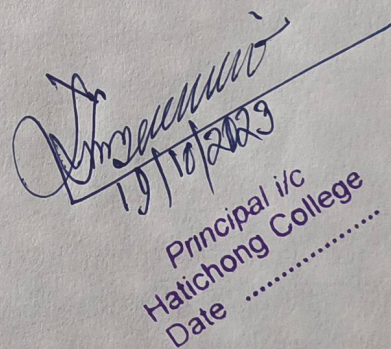 19/10/2023
Principal i/c
Hatichong College
Date ..................